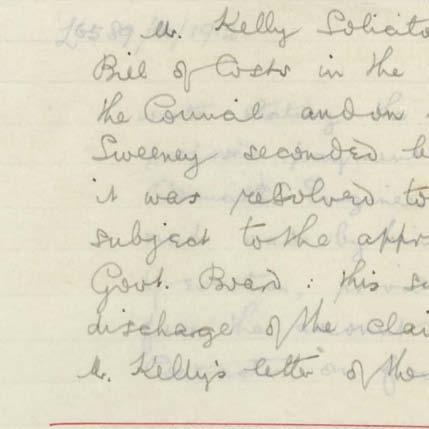 Mr. Kelly Solicito
Bill of Costs in the
the Council and on
Sweeney seconded b
it was resolved to
subject to the appr
Govt. Board : this su
discharge of the clai
Mr. Kelly's letter of the